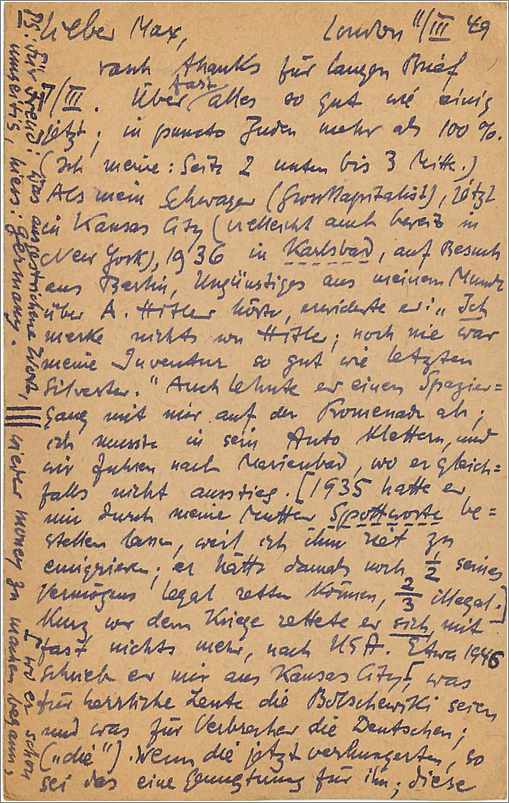 Lieber Max, London 11/III 49
rasch thanks für langen Brief
7/III. Über fast alles so gut wie einig
jetzt; in puncto Juden mehr als 100%.
(Ich meine: Seite 2 unten bis 3 Mitte.)
Als mein Schwager (Grosskapitalist), jetzt
in Kansas City (vielleicht auch bereits in
New York), 1936 in Karlsbad, auf Besuch
aus Berlin, Ungünstiges aus meinem Munde
über A. Hitler hörte, erwiderte er: „Ich
merke nichts von Hitler; noch nie war
meine Inventur so gut wie letzten
Silvester." Auch lehnte er einen Spazier=
gang mit mir auf der Promenade ab;
ich musste in sein Auto klettern, und
wir fuhren nach Marienbad, wo er gleich=
falls nicht ausstieg. [1935 hatte er
mir durch meine Mutter Spottworte be=
stellen lassen, weil ich ihm riet zu
emigrieren; er hätte damals noch 1/2 seines
Vermögens legal retten können, 2/3 illegal.]
Kurz vor dem Kriege rettete er sich, mit
fast nichts mehr, nach USA. Etwa 1946
schrieb er mir aus Kansas City, was
für herrliche Leute die Bolschewiki seien
und was für Verbrecher die Deutschen;
(„die"). Wenn die jetzt verhungerten, so
sei das eine Genugtuung für ihn; diese
[wo er schon wieder money zu machen begann,
PS. Für Freud: das ausgestrichene Wort,
umseitig, hiess: Germany.